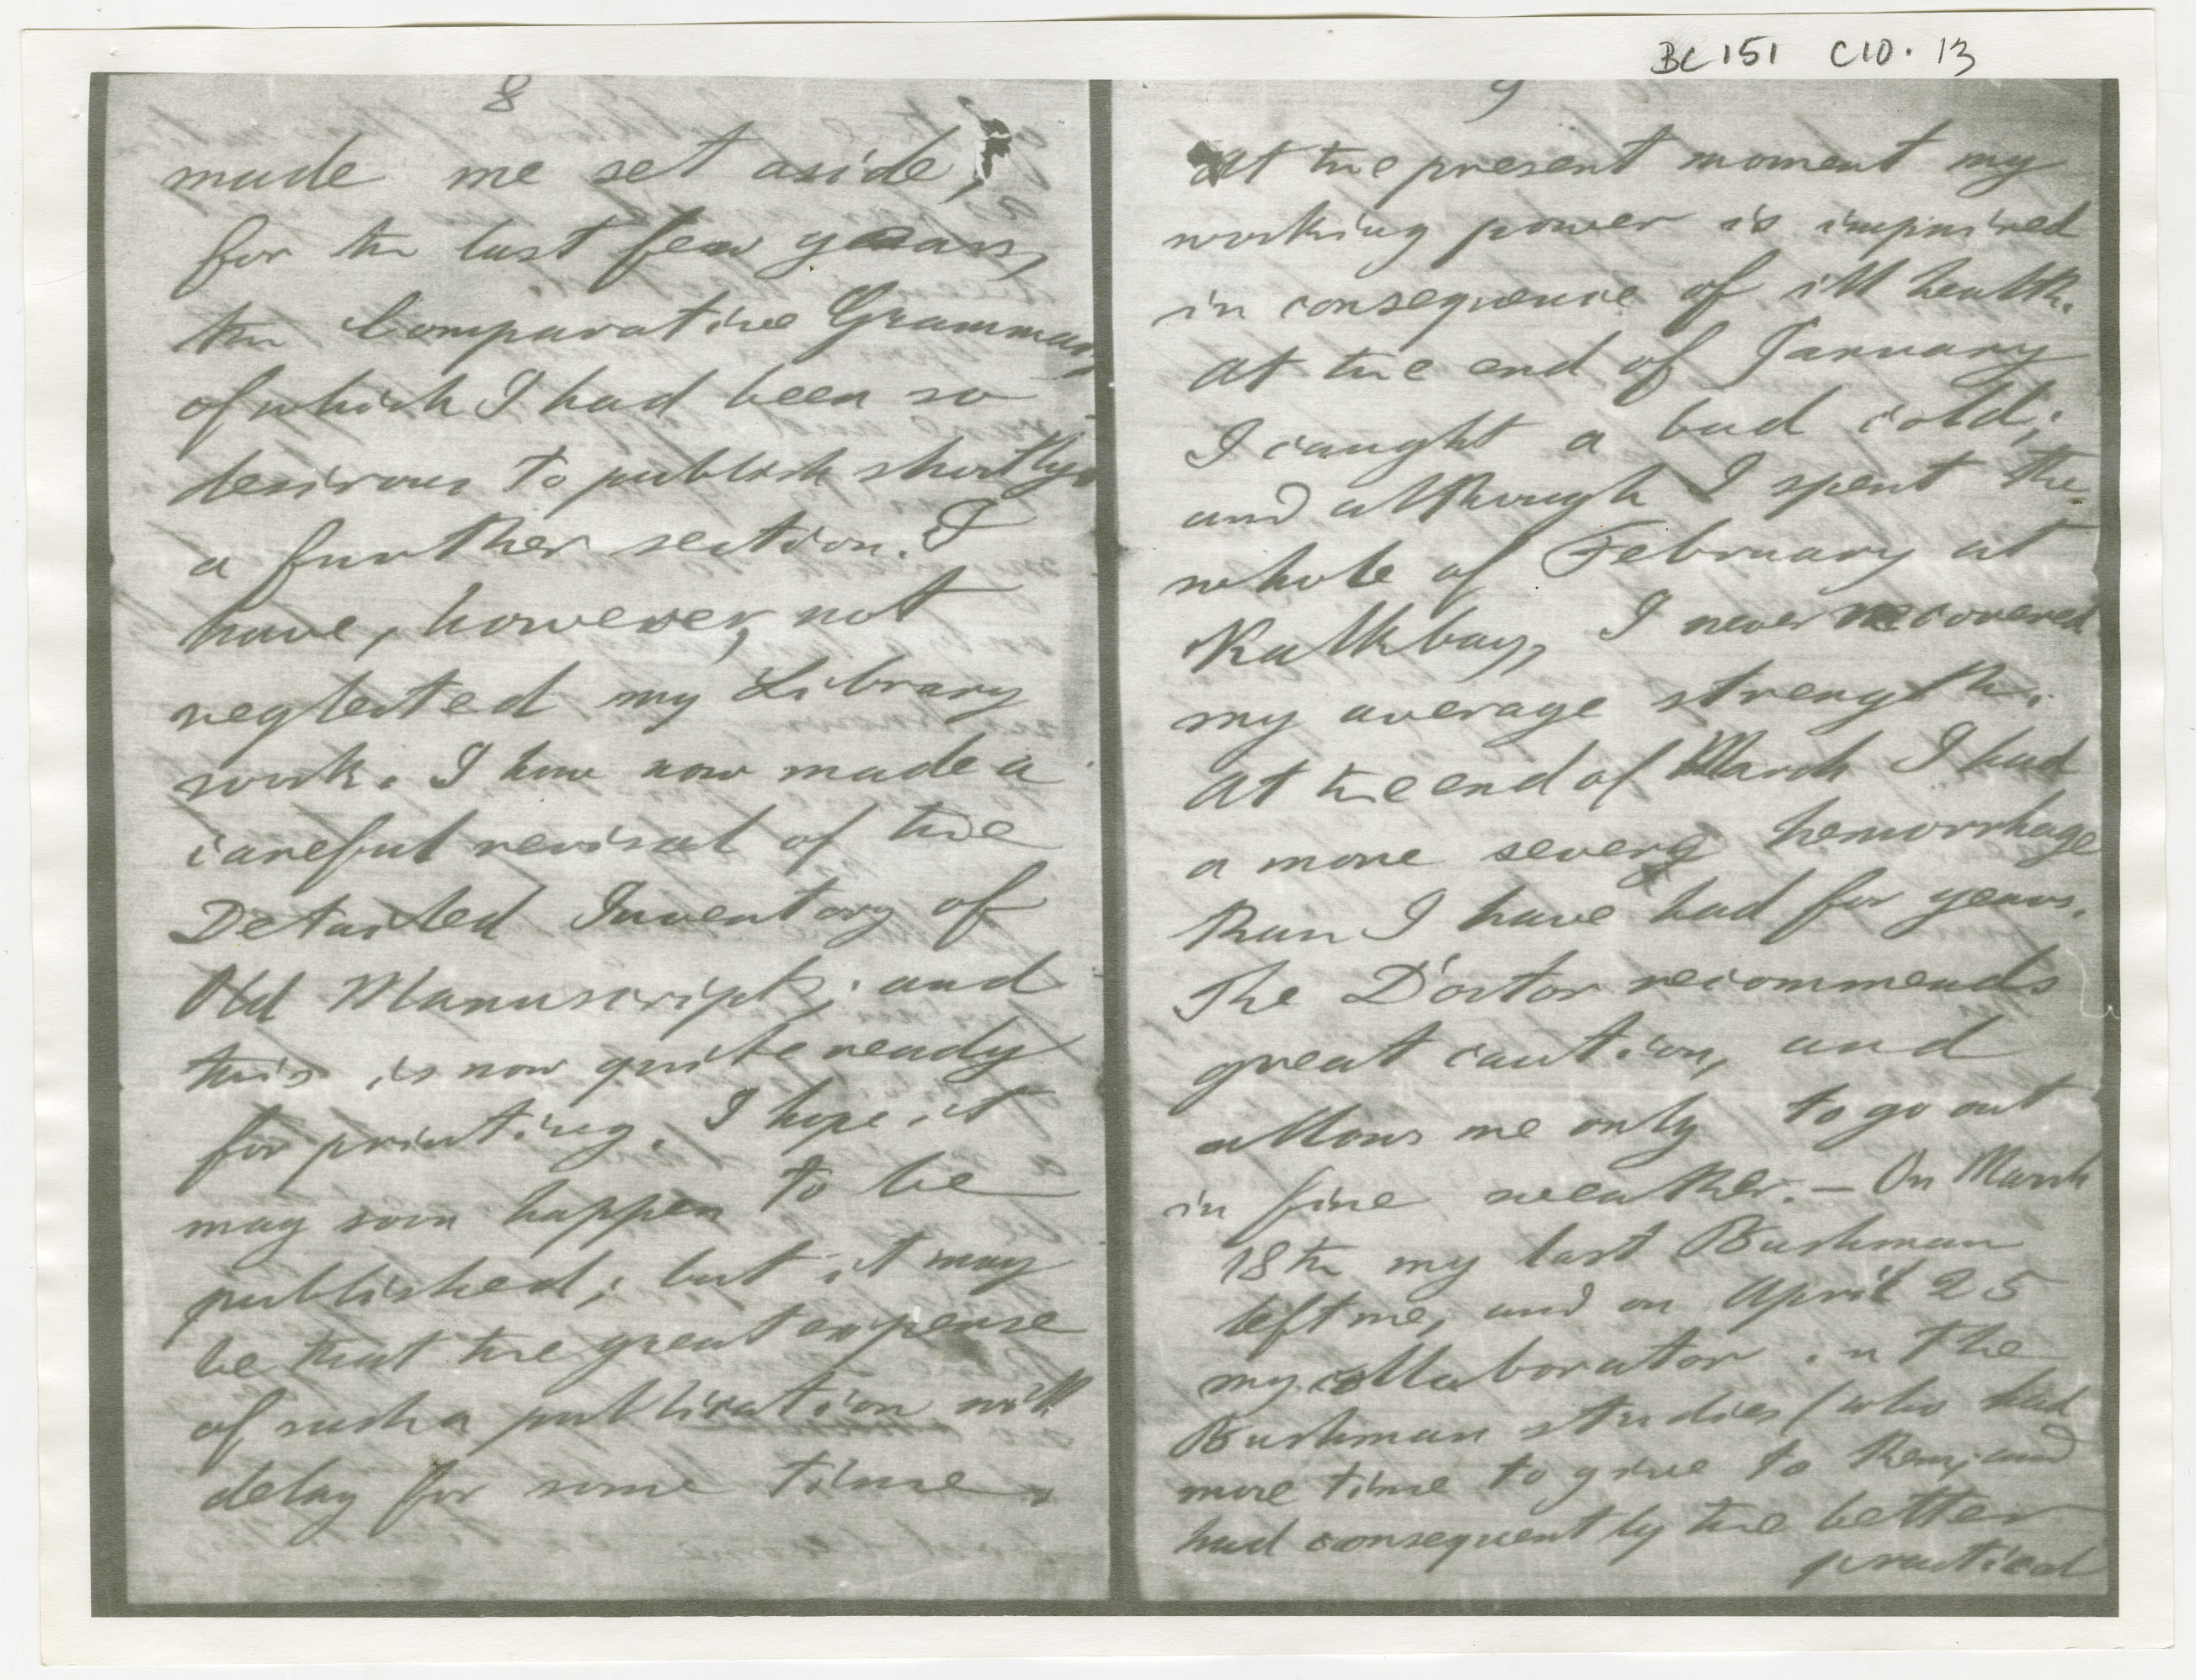 BC 151 C10.13
8
made me set aside,
for the last few years,
the Comparative Grammar,
of which I had been so
desirous to publish shortly
a further section. I
have, however, not
neglected my Library
work. I have now made a
careful revisal of the
Detailed Inventory of
Old Manuscripts; and
this is now quite ready
for printing. I hope it
may soon happen to be
published; but it may
be that the great expense
of such a publication will
delay for some time.
9
At the present moment my
working power is impaired
in consequence of ill health.
At the end of January
I caught a bad cold;
and although I spent the
whole of February at
Kalkbay, I never recovered
my average strength.
At the end of March I had
a more severe hemorrhage
than I have had for years.
The Doctor recommends
great caution, and
allows me only to go out
in fine weather. — On March
18th my last Bushman
left me, and on April 25
my collaborator in the
Bushman studies (who had
more time to give to them, and
had consequently the better
practical